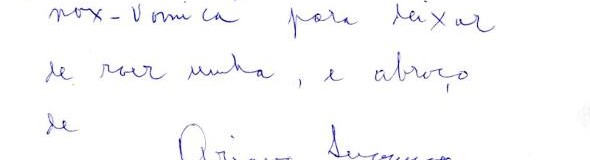 nox-vomica para deixar
de roer unha, e abraço
de